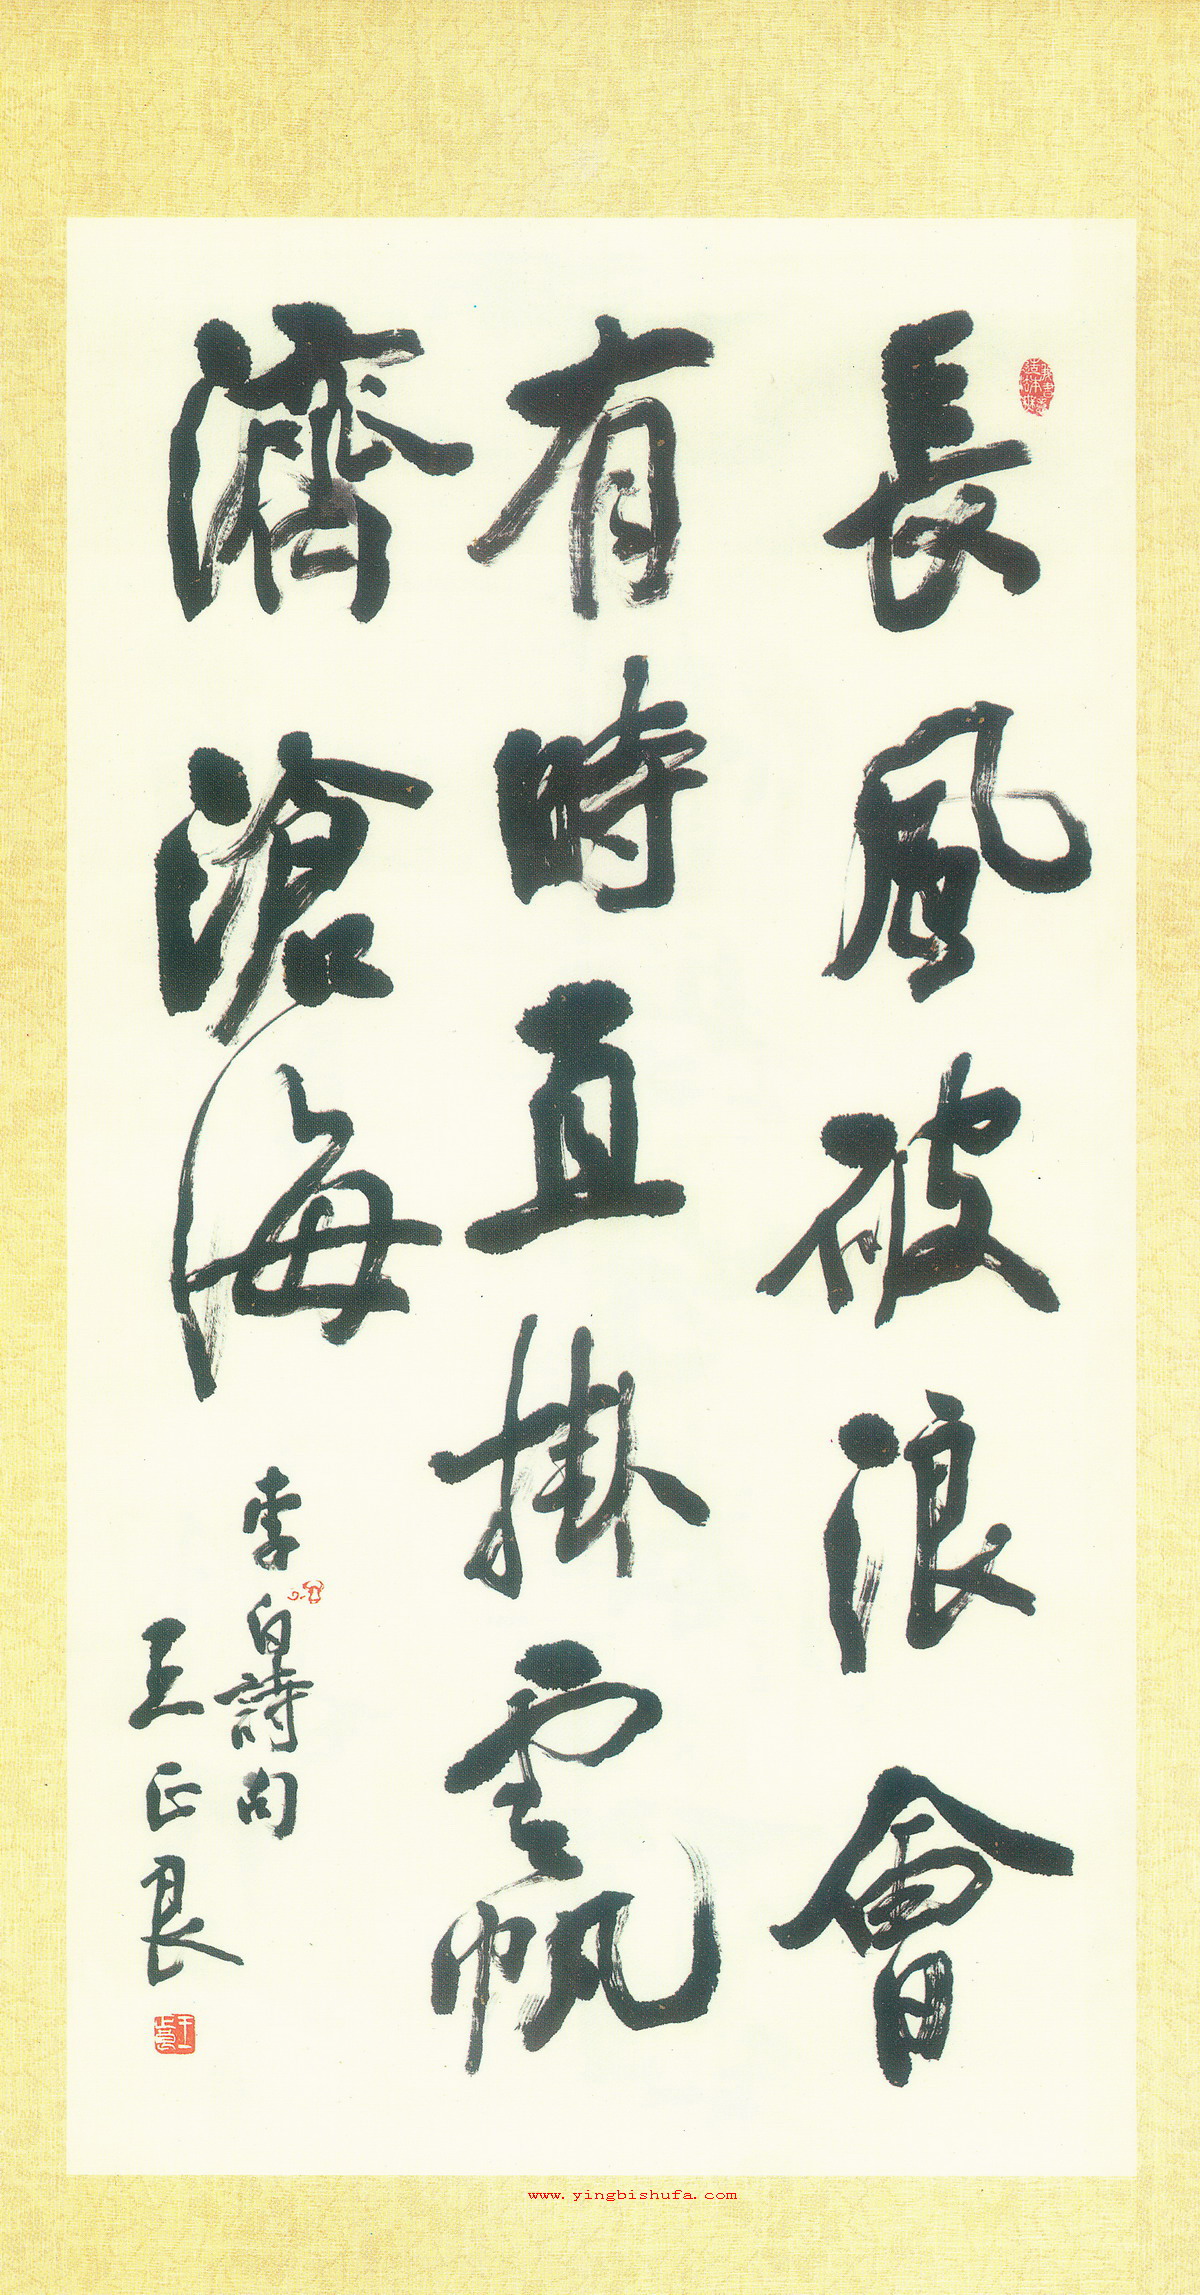 長風破浪會
有時直掛雲帆
濟滄海
李白詩句
王正良
www.yingbishufa.com